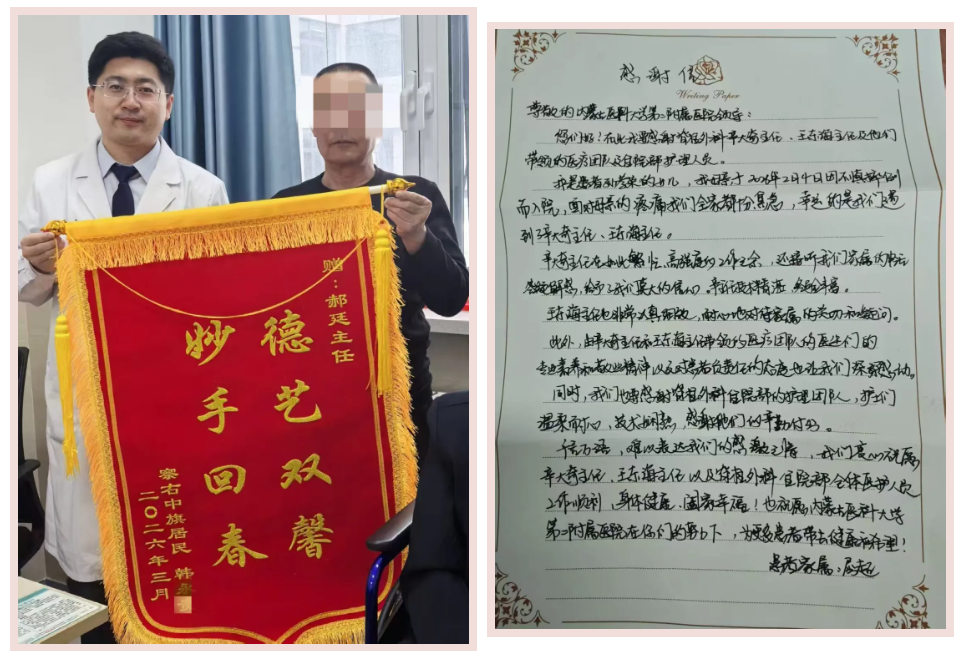 赠：郝廷主任
德艺双馨
妙手回春
察右中旗居民 韩
二〇二六年三月
感谢信
Writing Paper
尊敬的内蒙古医科大学第二附属医院领导：
您们好！在此我要感谢脊柱外科辛大奇主任、王东海主任及他们
带领的医疗团队及住院部护理人员。
我是患者的女儿，我母亲于2026年2月9日因不慎摔倒
而入院，面对母亲的疼痛我们全家都份焦急，幸运的是我们遇
到了辛大奇主任、王东海主任。
辛大奇主任在如此繁忙、高强度的工作之余，还倾听我们家属的
答疑解惑，给予了我们莫大的信心。
王东海主任也非常认真负责，耐心地对待家属的关切和疑问。
此外，由辛大奇主任和王东海主任带领的医疗团队的医生们的
专业素养和敬业精神以及对患者负责任的态度也让我们深受感动。
同时，我们也要感谢脊柱外科住院部的护理团队，护士们
温柔耐心，技术娴熟，感谢她们的辛勤付出。
千言万语，难以表达我们的感激之情，我们衷心祝愿
辛大奇主任、王东海主任以及脊柱外科住院部全体医护人员
工作顺利，身体健康，阖家幸福！也祝愿内蒙古医科大学
第二附属医院在你们的努力下，为更多患者带去健康和希望！
患者家属：